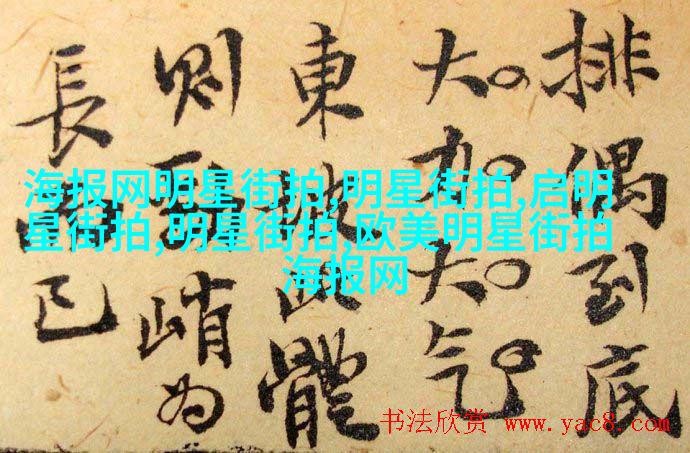 排偶到底
大加大气
東坡此體
則峭为
長已
海报网明星街拍,明星街拍,启明
星街拍,明星街拍,欧美明星街拍
海报网
书法欣赏 www.yac8.com